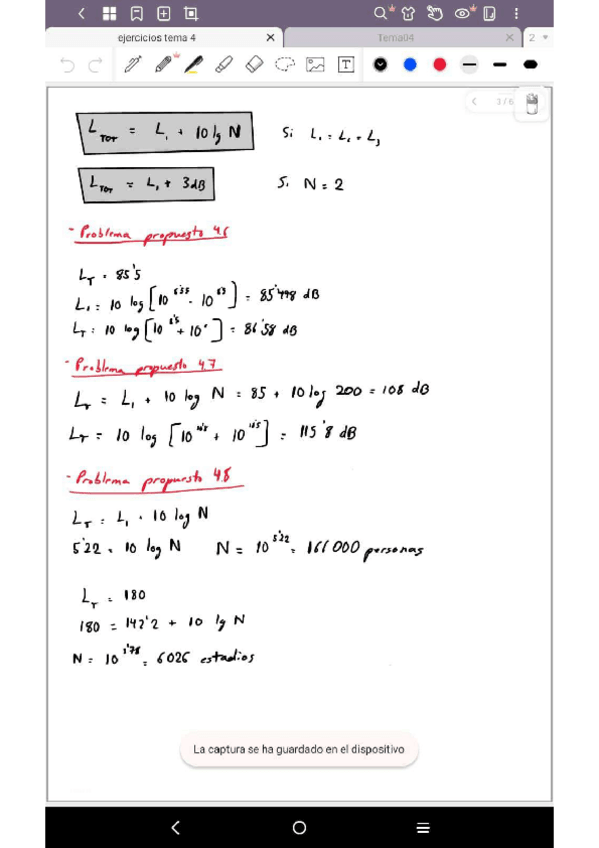 ejercicios tema 4
Tema04
2
3/6
L_TOT = L₁ + 10 lg N Si L₁ = L₂ = L₃
L_TOT = L₁ + 3dB Si N = 2
- Problema propuesto 4.6
L_T = 85'5
L₁ = 10 log [10 - 10] = 85'498 dB
L_T = 10 log [10 + 10] = 86'58 dB
- Problema propuesto 4.7
L_T = L₁ + 10 log N = 85 + 10 log 200 = 108 dB
L_T = 10 log [10 + 10] = 115'8 dB
- Problema propuesto 4.8
L_T = L₁ + 10 log N
5'22 = 10 log N N = 10^5'22 = 166000 personas
L_T = 180
180 = 142'2 + 10 lg N
N = 10^3'78 = 6026 estadios
La captura se ha guardado en el dispositivo